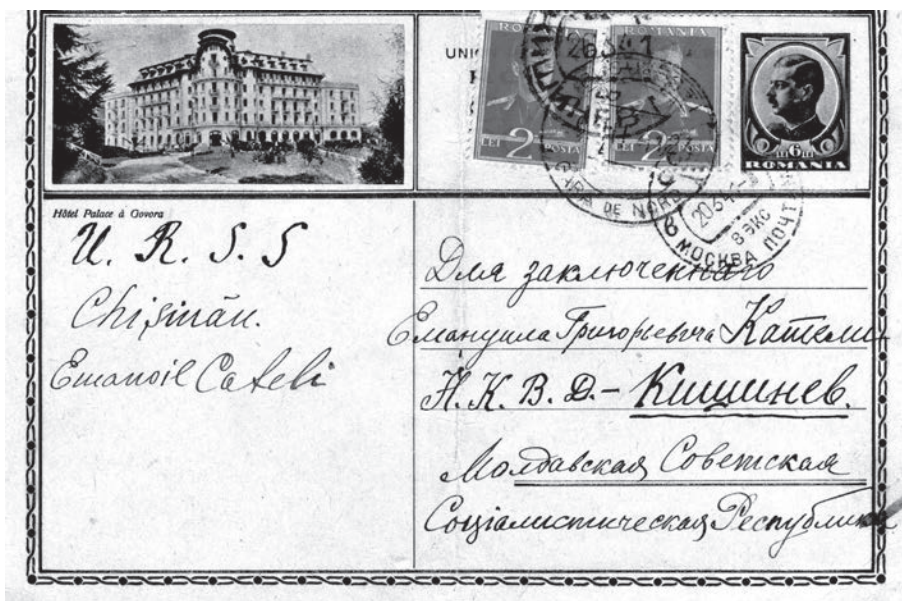 UNI
ROMANIA
2
LEI POSTA
ROMANIA
2
LEI POSTA
6
ROMANIA
GARA DE NORD
МОСКВА ПОЧТ
8 ЭКС
Hôtel Palace à Govora
U. R. S. S
Chișinău.
Emanoil Cateli
Для заключеннаго
Емануила Григорьевича Катели
Н. К. В. Д. - Кишинев.
Молдавская Советская
Соціалистическая Республика